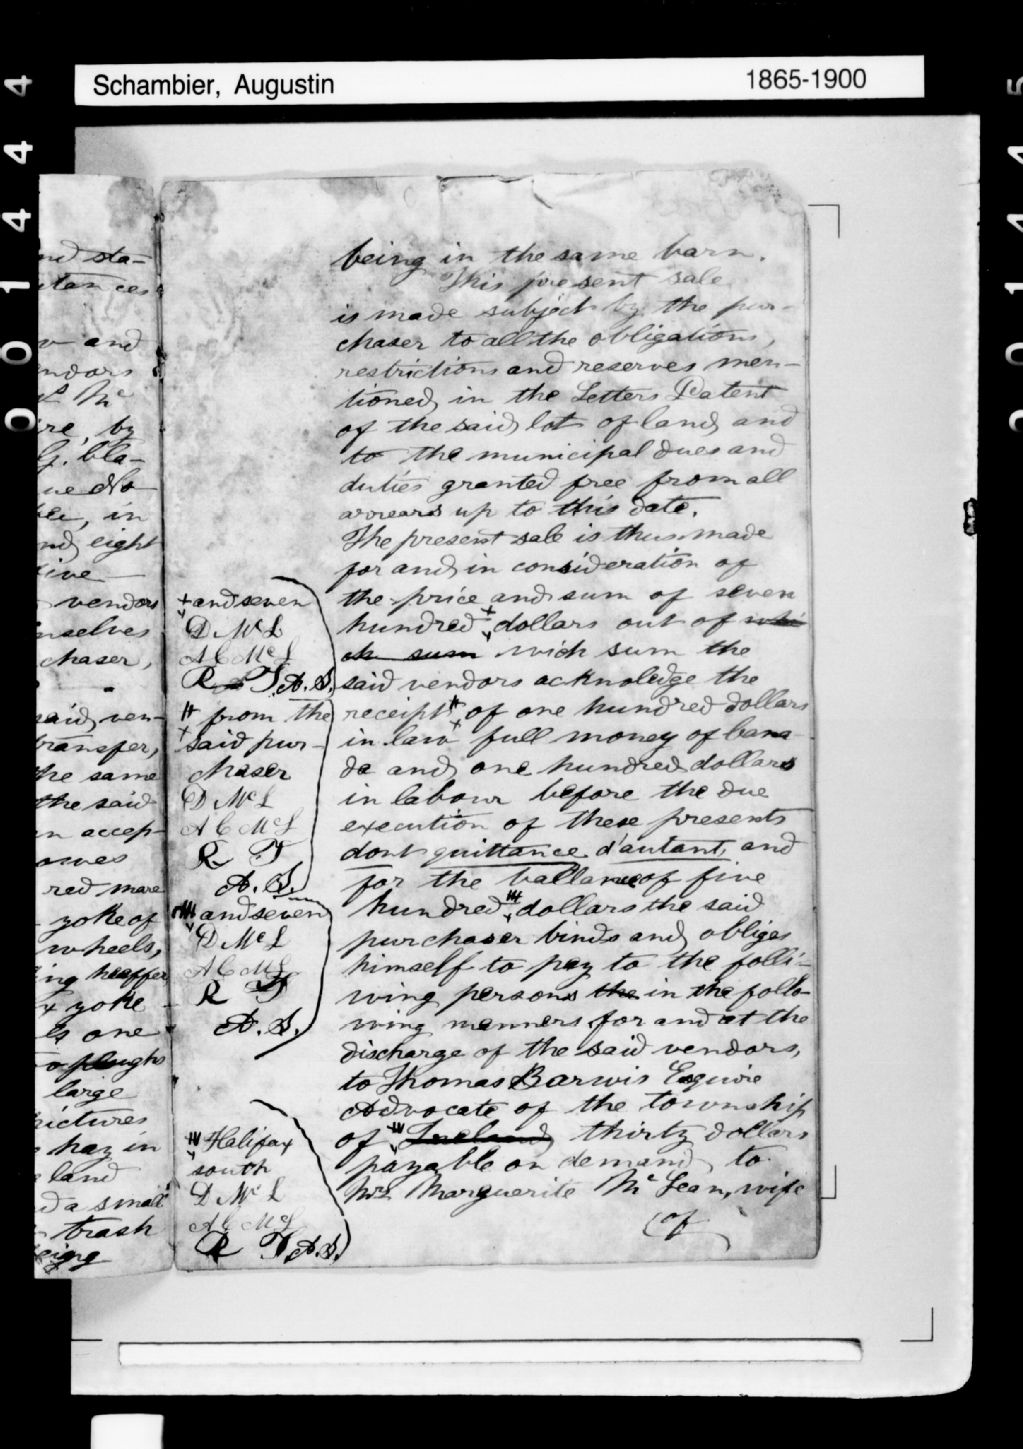 Schambier, Augustin
1865-1900
001444
001445
nd sta-
stances
v and
endors
Mc
re, by
G. bla-
ue No
in
nd eight
five
vendors
mselves
chaser,
said ven-
transfer,
the same
the said
n accep-
red mare
yoke of
wheels,
ing heaffer
yoke
ls one
ploughs
large
pictures
hay in
land
d a small
trash
being
being in the same barn.
This present sale
is made subject by the pur-
chaser to all the obligations,
restrictions and reserves men-
tioned in the Letters Patent
of the said lot of land and
to the municipal dues and
duties granted free from all
arrears up to this date.
The present sale is thus made
for and in consideration of
the price and sum of seven
hundred + dollars out of whi-
ch sum wich sum the
said vendors acknoledge the
receipt # of one hundred dollars
in law + full money of Cana-
da and one hundred dollars
in labour before the due
execution of these presents
dont quittance d'autant, and
for the ballance of five
hundred dollars the said
purchaser binds and obliges
himself to pay to the follo-
wing persons the in the follo-
wing manners for and at the
discharge of the said vendors,
to Thomas Barwis Esquire
Advocate of the township
of Ireland thirty dollars
payable on demand, to
Mrs. Marguerite McLean, wife
(of
+ and seven
D McL
A C McL
R T A. S.
# from the
+ said pur-
chaser
D McL
A C McL
R T
A. S.
and seven
D McL
A C McL
R T
A. S.
Halifax
south
D McL
A C McL
R T A. S.